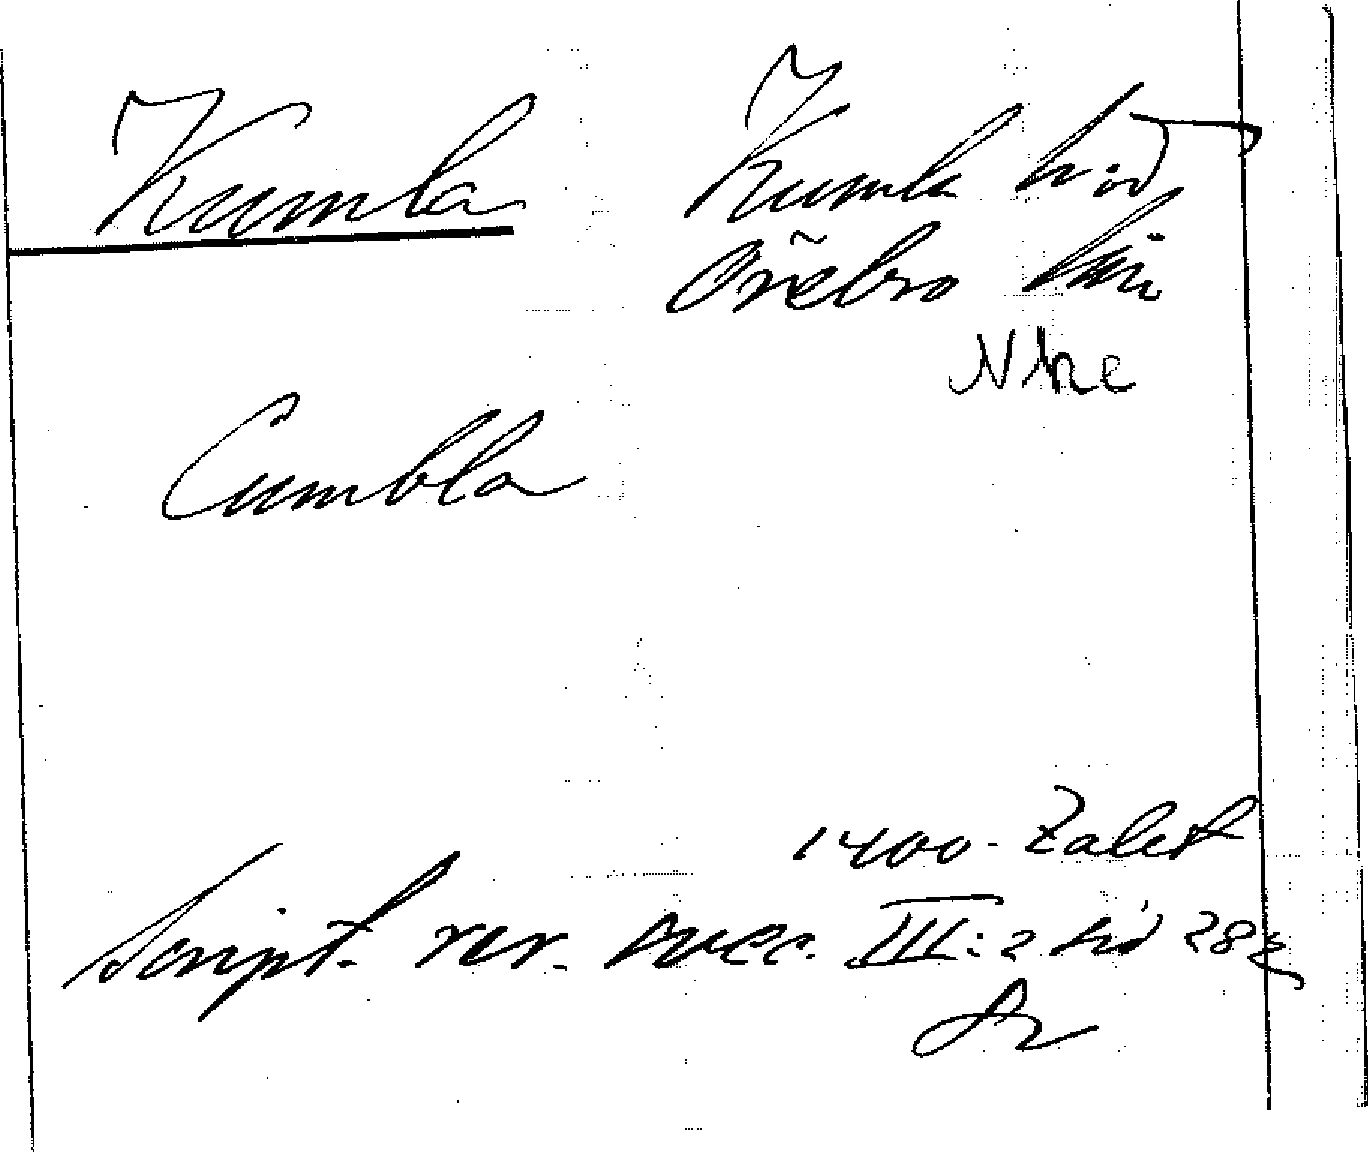 Kumla Kumla hd
Örebro län
Nke
Cumbla
1400-talet
Script. rer. svec. III:2 sid 283